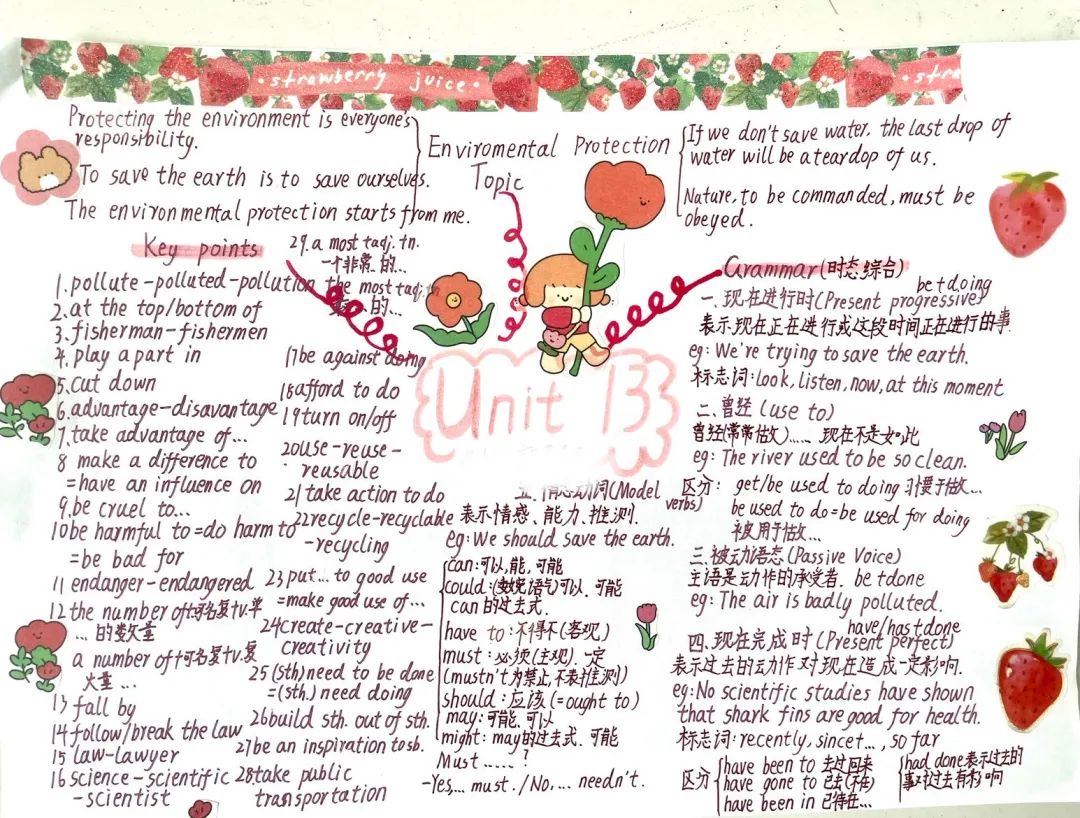 • strawberry juice •
stra
Protecting the environment is everyone's
responsibility.
To save the earth is to save ourselves.
The environmental protection starts from me.
Enviromental Protection
Topic
If we don't save water, the last drop of
water will be a teardop of us.
Nature, to be commanded, must be
obeyed.
Key points
1.pollute-polluted-pollution
2.at the top/bottom of
3.fisherman-fishermen
4.play a part in
5.cut down
6.advantage-disavantage
7.take advantage of...
8 make a difference to
=have an influence on
9 be cruel to...
10 be harmful to=do harm to
=be bad for
11 endanger-endangered
12 the number of+可名复+v.单
...的数量
a number of+可名复+v.复
大量...
13 fall by
14 follow/break the law
15 law-lawyer
16 science-scientific
-scientist
29. a most+adj.+n.
一个非常的...
the most+adj.+n
最的...
17 be against doing
18 afford to do
19 turn on/off
20 use-reuse-
reusable
21 take action to do
22 recycle-recyclable
-recycling
23 put... to good use
=make good use of...
24 create-creative-
creativity
25 (sth) need to be done
=(sth.) need doing
26 build sth. out of sth.
27 be an inspiration to sb.
28 take public
transportation
Unit 13
五.情态动词(Model
verbs)
表示情感、能力、推测.
eg: We should save the earth.
can:可以,能,可能
could:(委婉语气)可以.可能
can的过去式.
have to:不得不(客观)
must:必须(主观).一定
(mustn't为禁止,不表推测)
should:应该(=ought to)
may:可能.可以
might: may的过去式.可能
Must.....?
-Yes,... must. / No, ... needn't.
Grammar(时态综合)
be+doing
一.现在进行时(Present progressive)
表示现在正在进行或这段时间正在进行的事.
eg: We're trying to save the earth.
标志词:look, listen, now, at this moment
二.曾经(use to)
曾经(常常做)......现在不是如此
eg: The river used to be so clean.
区分: get/be used to doing 习惯于做...
be used to do=be used for doing
被用于做...
三.被动语态(Passive Voice)
主语是动作的承受者. be+done
eg: The air is badly polluted.
have/has+done
四.现在完成时(Present perfect)
表示过去的动作对现在造成一定影响.
eg: No scientific studies have shown
that shark fins are good for health.
标志词:recently, since+..., so far
区分
have been to 去过回来
have gone to 已去(不在)
have been in 已待在...
had done表示过去的
事对过去有影响